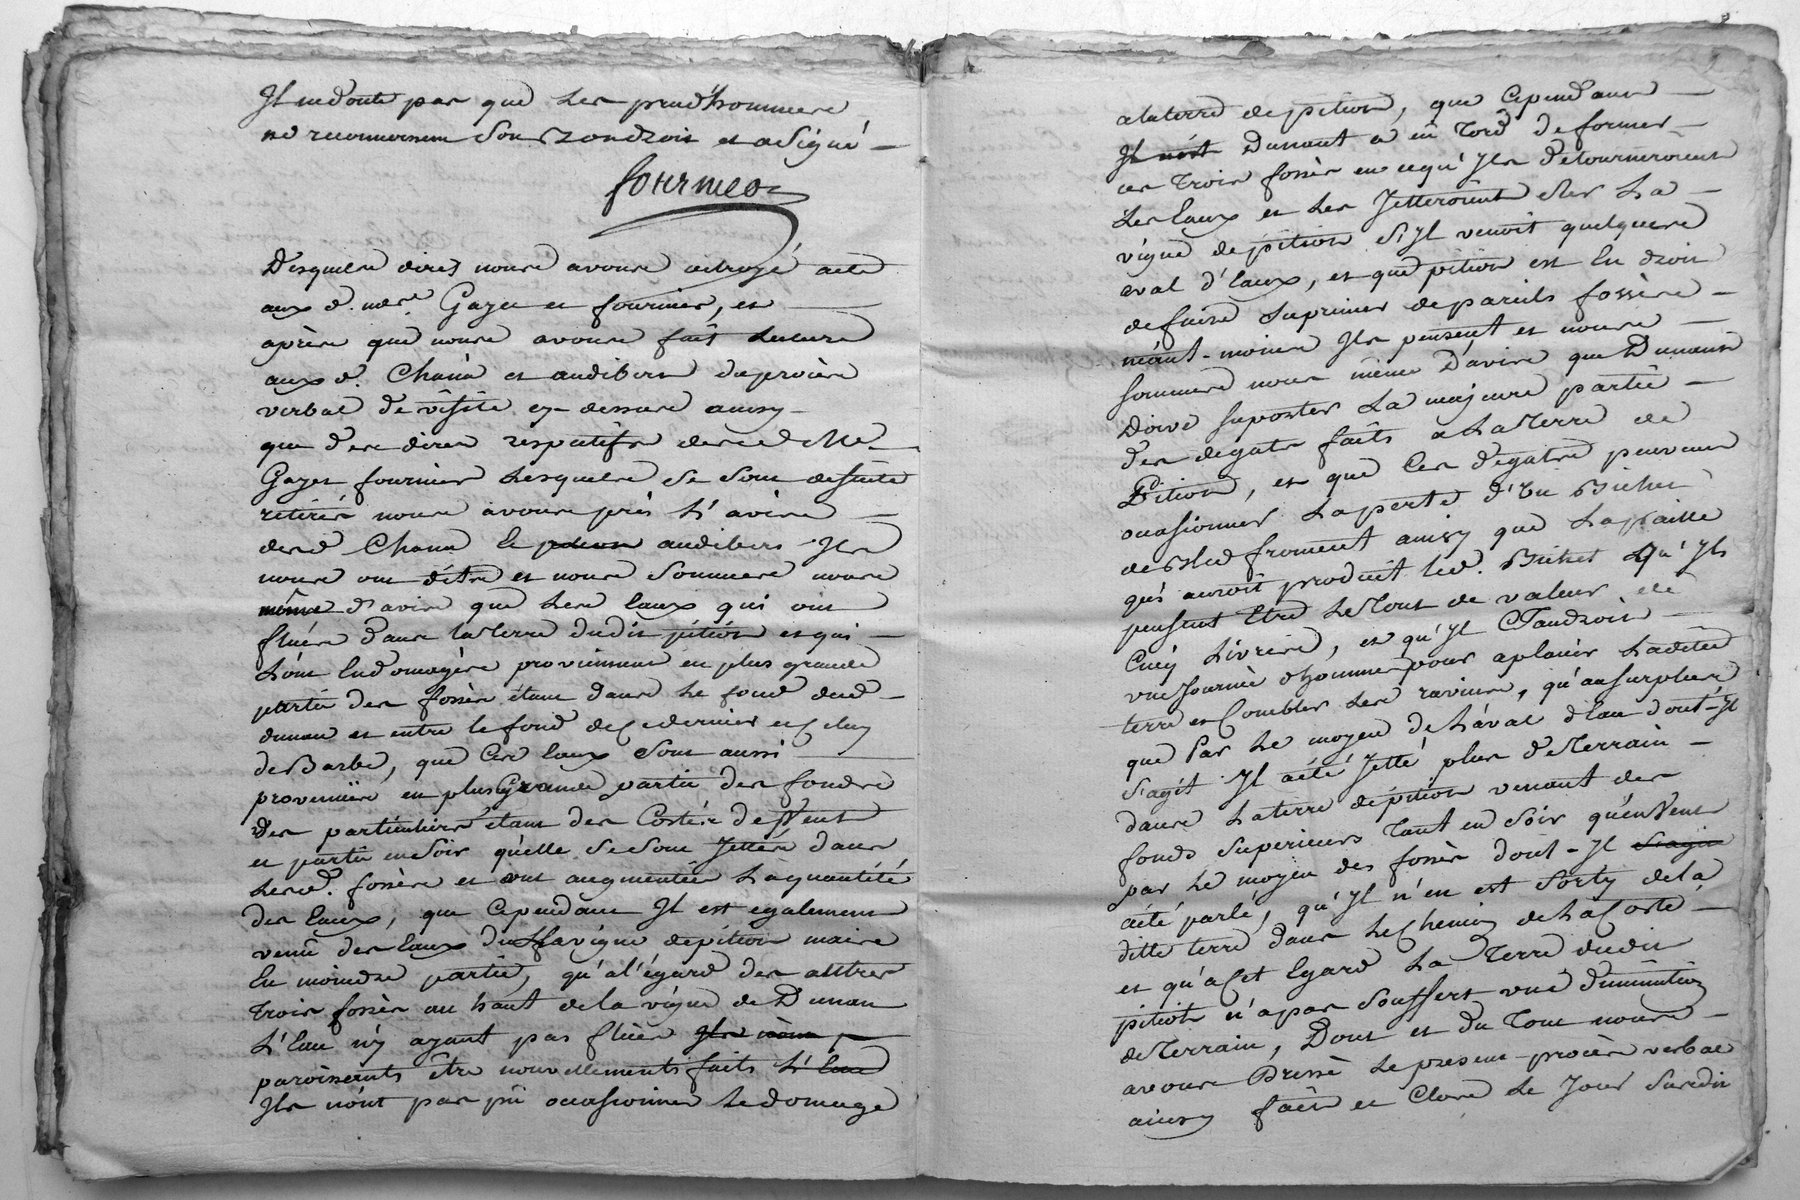 Il ne doute pas que les prud'hommes
ne reconnoissent son bon droit et a signé
fournier
Desquels dires nous avons octroyé acte
aux d. mes. Gayet et fournier, et
après que nous avons fait lecture
aux d. Chana et audibert du procès
verbal de visite cy-dessus ainsy
que des dires respectifs desd. Me
Gayet fournier lesquels se sont de suite
retirés nous avons pris l'avis
desd. Chana et audibert Ils
nous ont détre et nous sommes nous
même d'avis que les Eaux qui ont
fluée dans la terre dudit pition et qui
l'ont Endomagée proviennent en plus grande
partie des fossés étant dans le fond dud.
dunan et entre le fond de ce dernier et celuy
de Barbe, que Ces Eaux sont aussi
provenües en plus Grande partie des fonds
des particuliers étant des Costés de
et partie en soir qu'elle se sont Jettée dans
lesd. fossés et ont augmentée la quantité
des Eaux, que Cependant Il est également
venü des Eaux de la vigne de pition mais
En moindre partie, qu'a l'égard des autres
trois fossés au haut de la vigne de Dunan
L'Eau n'y ayant pas fluée Ils
paroissants être nouvellements faits L'Eau
Ils n'ont pas pü occasionner Le domage
a la terre de pition, que Cependant
Il n'est Dunant a eü tord de former
ces trois fossés en ce qu'Ils detourneroient
Les Eaux et Les Jetteroient sur La
vigne de pition s'Il venoit quelques
aval d'Eaux, et que pition est En droit
de faire suprimer de pareils fossés
néant-moins Ils pensent et nous
sommes nous même D'avis que Dunant
Doive suporter La majeure partie
des degats faits a La terre de
Pition, et que Ces dégats peuvent
occasionner La perte d'Un Bichet
de Bled froment ainsy que La paille
qu'i auroit produit led. Bichet qu'Ils
pensent Etre Le tout de valeur de
Cinq Livres, et qu'Il faudroit
une Journée d'hommes pour aplanir Ladite
terre et Combler Les ravines, qu'au surplus
que Par Le moyen de L'aval d'Eau dont-Il
s'agit Il a été Jetté plus de terrain
dans La terre de pition venant des
fonds superieurs tant en soir qu'en vent
par Le moyen des fossés dont-Il s'agit
a été parlé, qu'Il n'en est sorty de la
ditte terre dans Le Chemin de La Coste
et qu'a Cet Egard La Terre dudit
pition n'a pas souffert une diminution
de Terrain, Dont et du tout nous
avons Dressé Le present procès verbal
ainsy fait et Clos Le Jour susdit